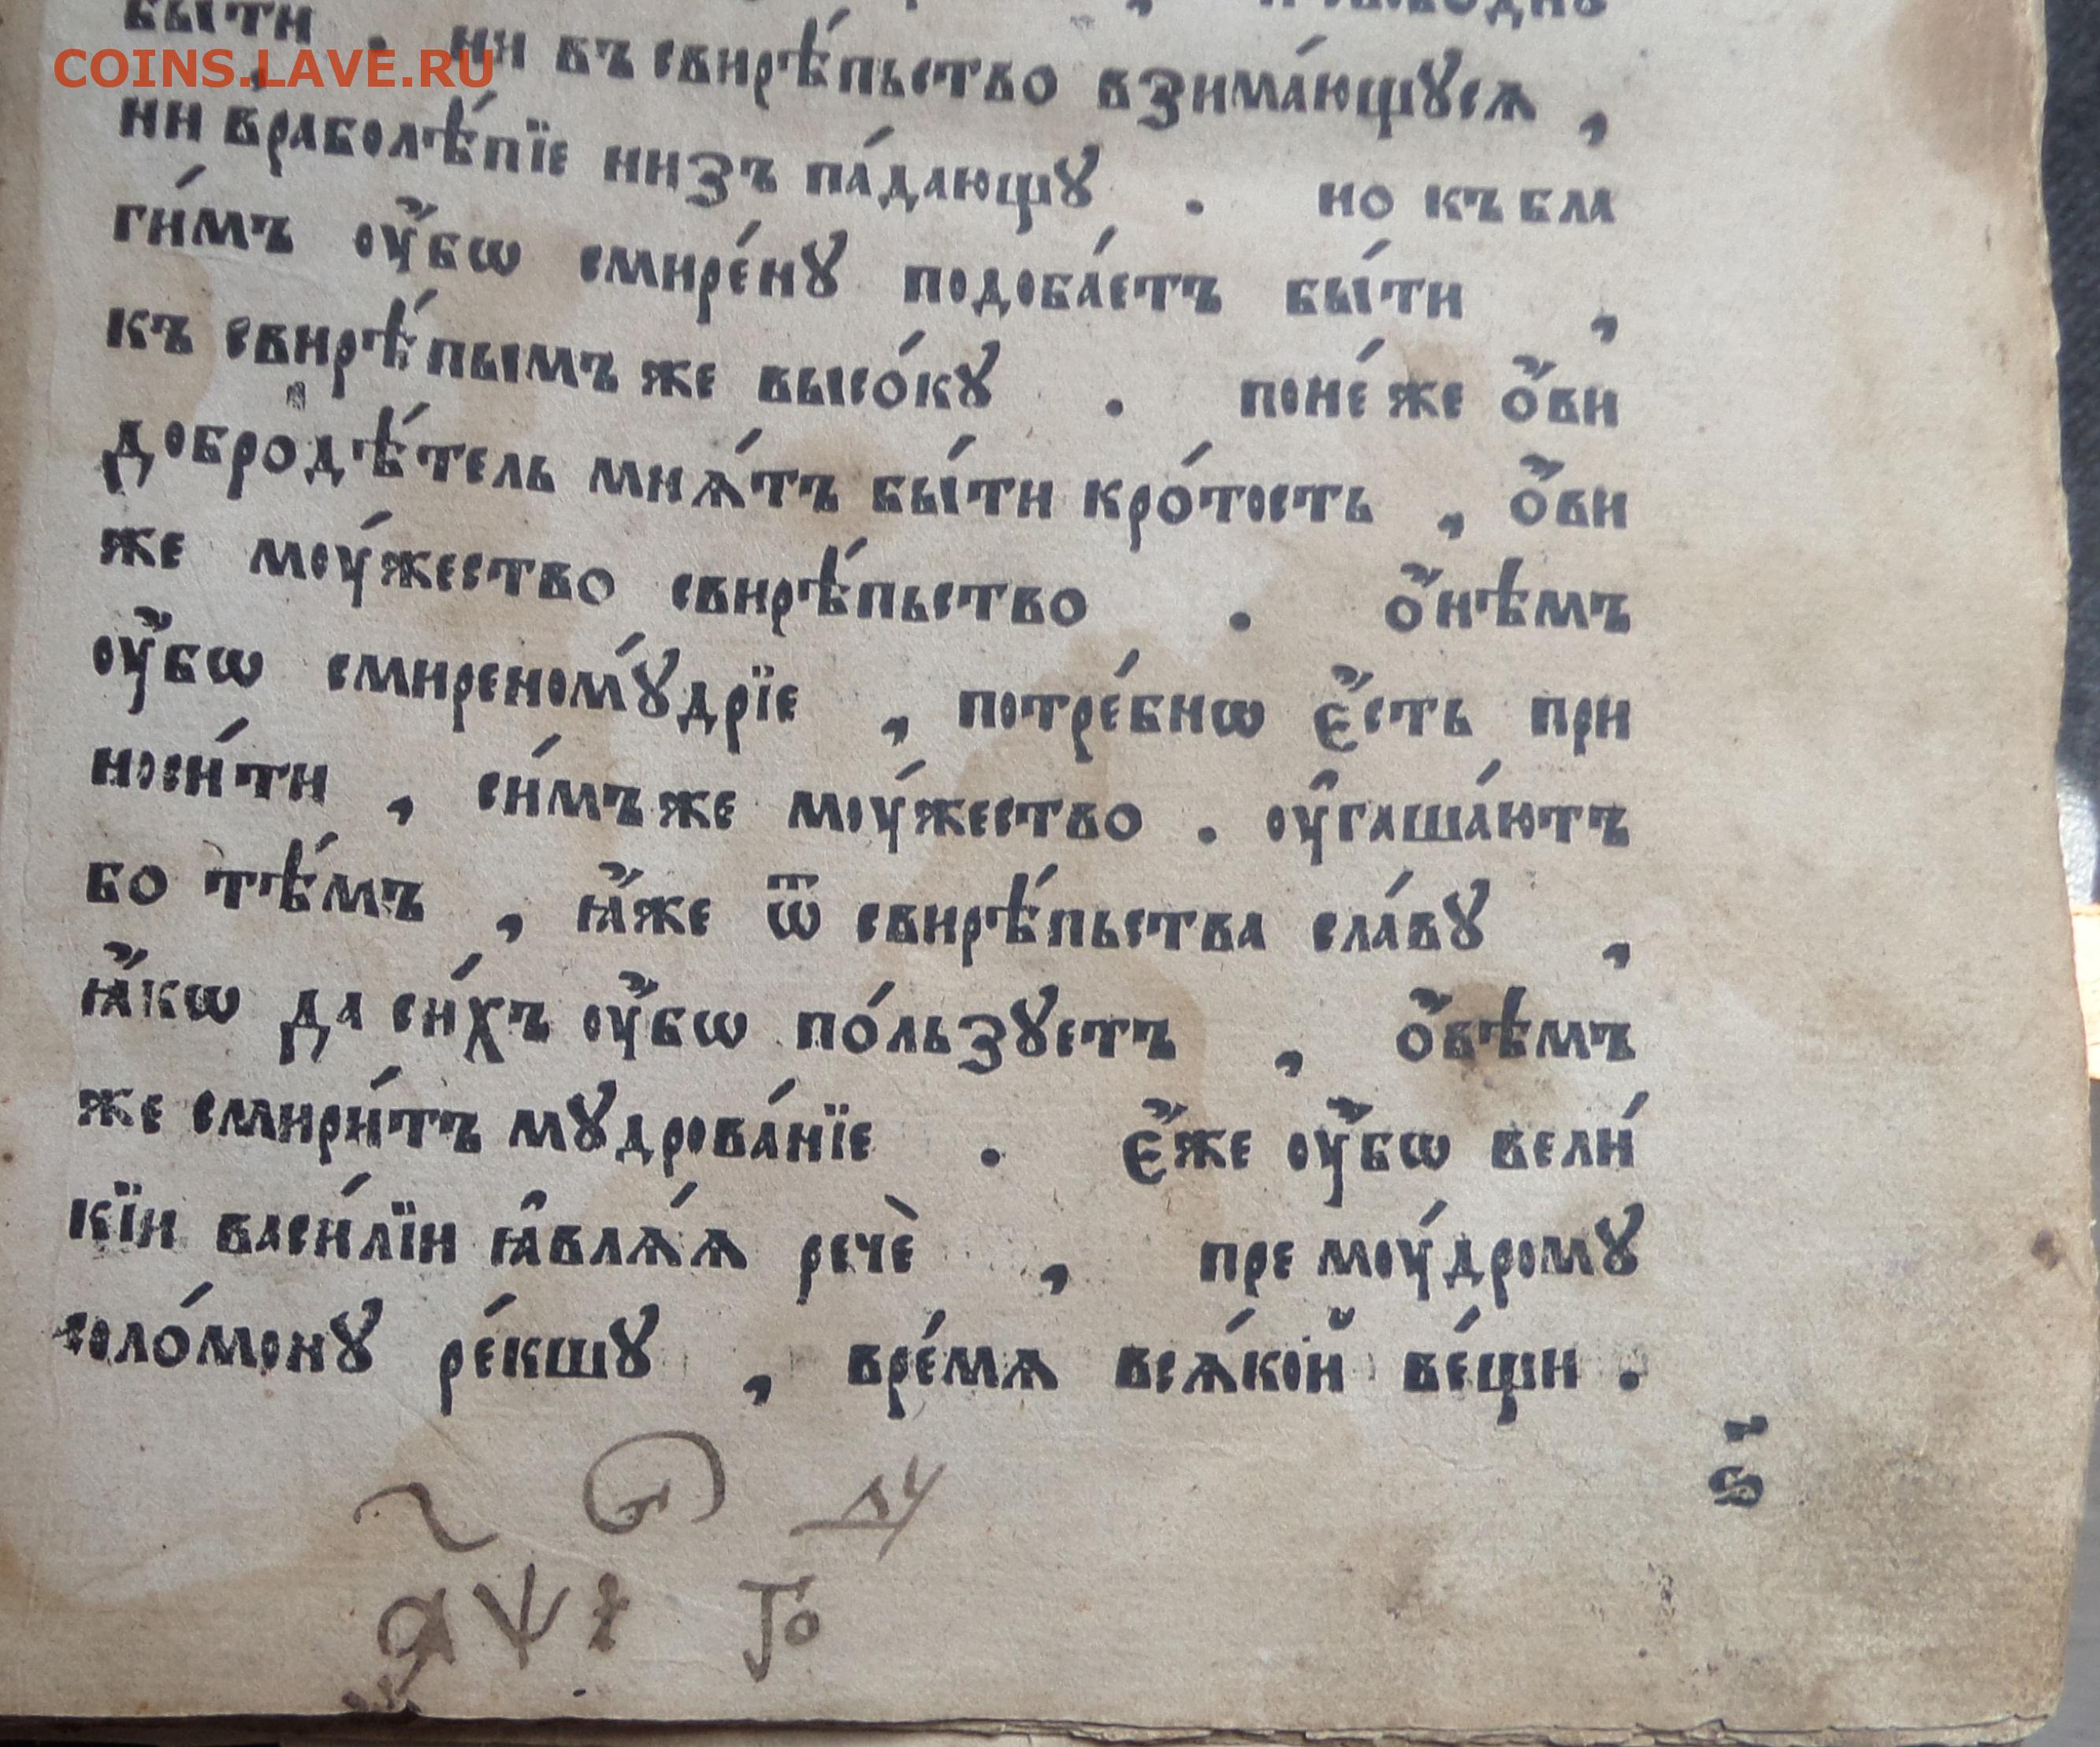 бы́ти . ни въ свирѣ́пьство взима́ющꙋся ,
COINS.LAVE.RU
ни в̾раболѣ́пїе низъ па́дающꙋ . но къ бла
ги́мъ ᲂу҆́бѡ смире́нꙋ подоба́етъ бы́ти ,
къ свирѣ́пымъ же высо́кꙋ . поне́ же ѻ҆́ви
добродѣ́тель мнѧ́тъ бы́ти кро́тость , ѻ҆́ви
же моу́жество свирѣ́пьство . ѻ҆́нѣмъ
ᲂу҆́бѡ смиреномꙋ́дрїе , потре́бнѡ є҆́сть при
носи́ти , си́мъ же моу́жество . ᲂу҆гаша́ютъ
бо тѣ́мъ , ꙗ҆́же ѿ свирѣ́пьства сла́вꙋ ,
ꙗ҆́кѡ да си́хъ ᲂу҆́бѡ по́льзꙋетъ , ѻ҆́вѣмъ
же смири́тъ мꙋдрова́нїе . є҆́же ᲂу҆́бѡ вели́
кїи васи́лїи ꙗ҆влѧ́ѧ речѐ , пре моу́дромꙋ
соло́монꙋ ре́кшꙋ , вре́мѧ всѧ́кой ве́щи .
ѕ҃